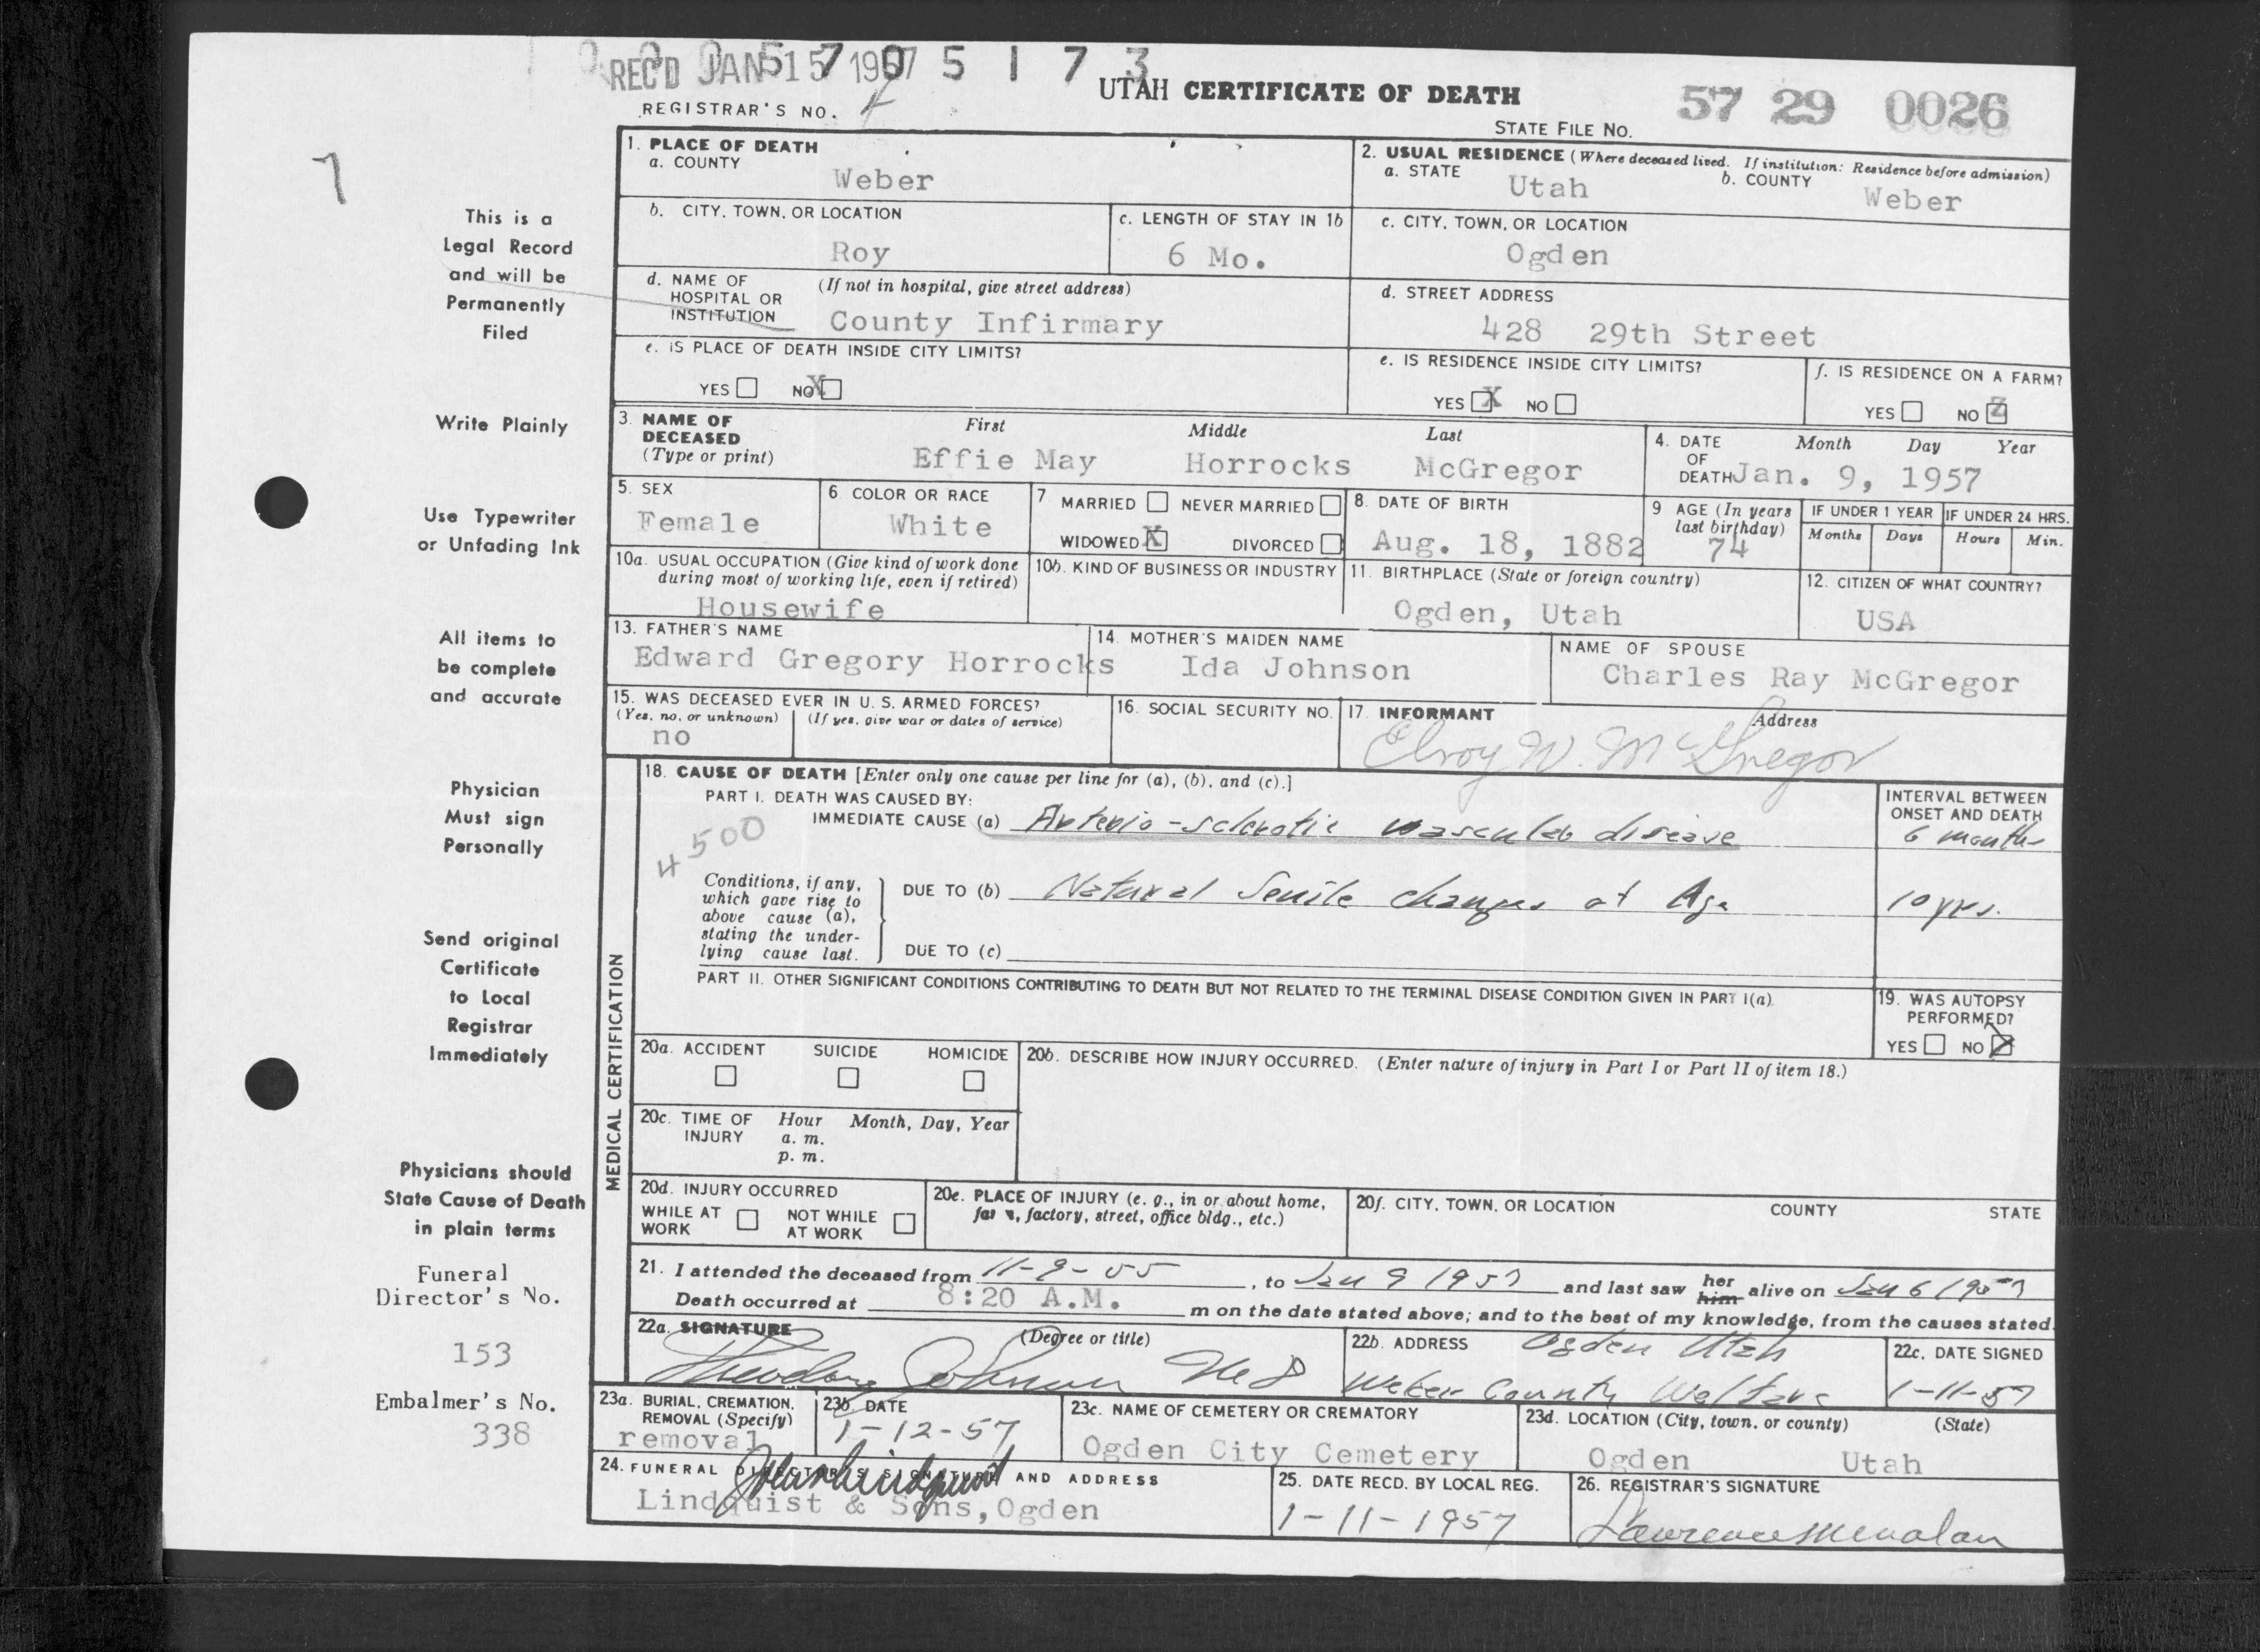 REC'D JAN 15 1957
5 7 0 5 1 7 3
REGISTRAR'S NO.
UTAH CERTIFICATE OF DEATH
STATE FILE NO. 57 29 0026
7
This is a
Legal Record
and will be
Permanently
Filed
Write Plainly
Use Typewriter
or Unfading Ink
All items to
be complete
and accurate
Physician
Must sign
Personally
Send original
Certificate
to Local
Registrar
Immediately
Physicians should
State Cause of Death
in plain terms
Funeral
Director's No.
153
Embalmer's No.
338
1. PLACE OF DEATH
a. COUNTY
Weber
2. USUAL RESIDENCE (Where deceased lived. If institution: Residence before admission)
a. STATE Utah b. COUNTY Weber
b. CITY, TOWN, OR LOCATION
Roy
c. LENGTH OF STAY IN 1b
6 Mo.
c. CITY, TOWN, OR LOCATION
Ogden
d. NAME OF HOSPITAL OR INSTITUTION (If not in hospital, give street address)
County Infirmary
d. STREET ADDRESS
428 29th Street
e. IS PLACE OF DEATH INSIDE CITY LIMITS?
YES NO X
e. IS RESIDENCE INSIDE CITY LIMITS?
YES X NO
f. IS RESIDENCE ON A FARM?
YES NO
3. NAME OF DECEASED (Type or print)
First Middle Last
Effie May Horrocks McGregor
4. DATE OF DEATH Month Day Year
Jan. 9, 1957
5. SEX
Female
6. COLOR OR RACE
White
7. MARRIED NEVER MARRIED
WIDOWED X DIVORCED
8. DATE OF BIRTH
Aug. 18, 1882
9 AGE (In years last birthday)
74
IF UNDER 1 YEAR
Months Days
IF UNDER 24 HRS.
Hours Min.
10a. USUAL OCCUPATION (Give kind of work done during most of working life, even if retired)
Housewife
10b. KIND OF BUSINESS OR INDUSTRY
11. BIRTHPLACE (State or foreign country)
Ogden, Utah
12. CITIZEN OF WHAT COUNTRY?
USA
13. FATHER'S NAME
Edward Gregory Horrocks
14. MOTHER'S MAIDEN NAME
Ida Johnson
NAME OF SPOUSE
Charles Ray McGregor
15. WAS DECEASED EVER IN U. S. ARMED FORCES?
(Yes, no, or unknown) (If yes, give war or dates of service)
no
16. SOCIAL SECURITY NO.
17. INFORMANT Address
Elroy W. McGregor
MEDICAL CERTIFICATION
18. CAUSE OF DEATH [Enter only one cause per line for (a), (b), and (c).]
PART I. DEATH WAS CAUSED BY:
IMMEDIATE CAUSE (a) Arterio-sclerotic vascular disease
INTERVAL BETWEEN ONSET AND DEATH
6 months
4500
Conditions, if any, which gave rise to above cause (a), stating the underlying cause last.
DUE TO (b) Natural Senile changes of Age
10 yrs.
DUE TO (c)
PART II. OTHER SIGNIFICANT CONDITIONS CONTRIBUTING TO DEATH BUT NOT RELATED TO THE TERMINAL DISEASE CONDITION GIVEN IN PART I(a).
19. WAS AUTOPSY PERFORMED?
YES NO X
20a. ACCIDENT SUICIDE HOMICIDE
20b. DESCRIBE HOW INJURY OCCURRED. (Enter nature of injury in Part I or Part II of item 18.)
20c. TIME OF INJURY Hour Month, Day, Year
a. m.
p. m.
20d. INJURY OCCURRED
WHILE AT WORK NOT WHILE AT WORK
20e. PLACE OF INJURY (e. g., in or about home, farm, factory, street, office bldg., etc.)
20f. CITY, TOWN, OR LOCATION COUNTY STATE
21. I attended the deceased from 11-9-55, to Jan 9 1957 and last saw her him alive on Jan 6 1957
Death occurred at 8:20 A.M. m on the date stated above; and to the best of my knowledge, from the causes stated.
22a. SIGNATURE (Degree or title)
Theodore Johnson MD
22b. ADDRESS Ogden Utah
Weber County Welfare
22c. DATE SIGNED
1-11-57
23a. BURIAL, CREMATION, REMOVAL (Specify)
removal
23b. DATE
1-12-57
23c. NAME OF CEMETERY OR CREMATORY
Ogden City Cemetery
23d. LOCATION (City, town, or county) (State)
Ogden Utah
24. FUNERAL DIRECTOR'S SIGNATURE AND ADDRESS
Lindquist & Sons, Ogden
25. DATE RECD. BY LOCAL REG.
1-11-1957
26. REGISTRAR'S SIGNATURE
Lawrence